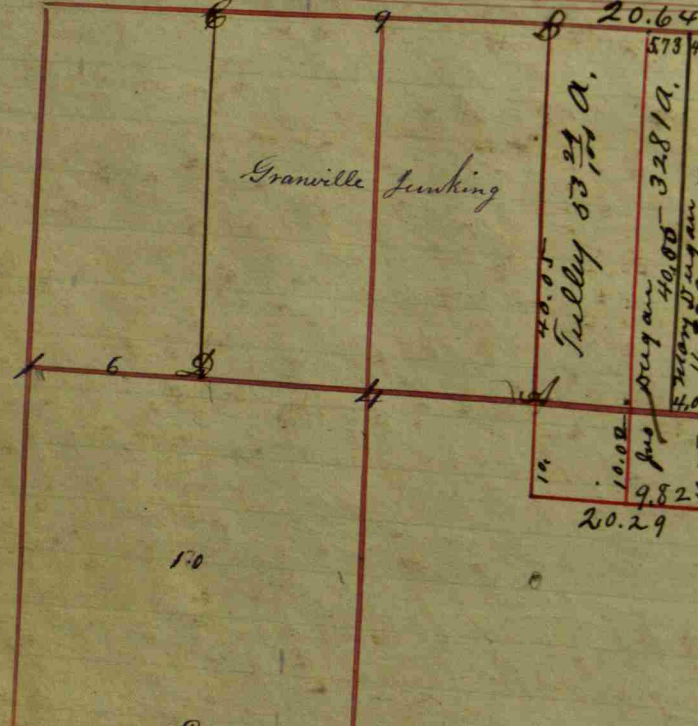 C 9 B 20.64
5.73 4
Granville Junking
40.05
Tulley 53 24/100 a.
Jno Dugan
40.05 32 81 a.
Mary Dugan
1 6 D 4 A
4.0
10.
10.02
9.82
20.29
170